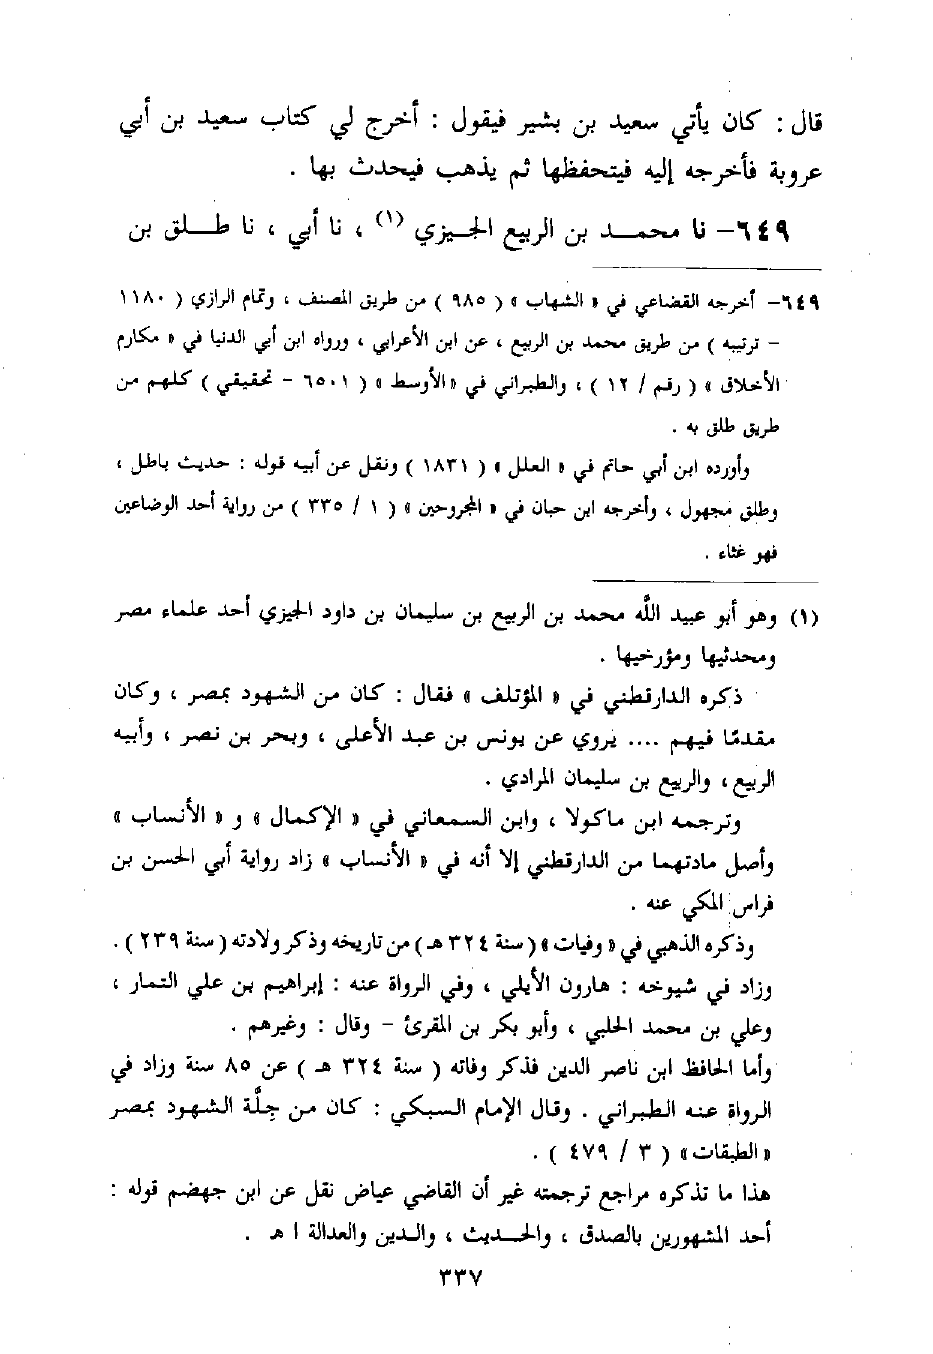 قال : كان يأتي سعيد بن بشير فيقول : أخرج لي كتاب سعيد بن أبي
عروبة فأخرجه إليه فيتحفظها ثم يذهب فيحدث بها .
٦٤٩– نا محمد بن الربيع الجيزي (١) ، نا أبي ، نا طلق بن
٦٤٩– أخرجه القضاعي في « الشهاب » ( ٩٨٥ ) من طريق المصنف ، وتمام الرازي ( ١١٨٠
– ترتيبه ) من طريق محمد بن الربيع ، عن ابن الأعرابي ، ورواه ابن أبي الدنيا في « مكارم
الأخلاق » ( رقم / ١٢ ) ، والطبراني في «الأوسط » ( ٦٥٠١ – تحقيقي ) كلهم من
طريق طلق به .
وأورده ابن أبي حاتم في « العلل » ( ١٨٣١ ) ونقل عن أبيه قوله : حديث باطل ،
وطلق مجهول ، وأخرجه ابن حبان في « المجروحين » ( ١ / ٣٣٥ ) من رواية أحد الوضاعين
فهو غثاء .
(١) وهو أبو عبيد الله محمد بن الربيع بن سليمان بن داود الجيزي أحد علماء مصر
ومحدثيها ومؤرخيها .
ذكره الدارقطني في « المؤتلف » فقال : كان من الشهود بمصر ، وكان
مقدمًا فيهم .... يروي عن يونس بن عبد الأعلى ، وبحر بن نصر ، وأبيه
الربيع ، والربيع بن سليمان المرادي .
وترجمه ابن ماكولا ، وابن السمعاني في « الإكمال » و « الأنساب »
وأصل مادتهما من الدارقطني إلا أنه في « الأنساب » زاد رواية أبي الحسن بن
فراس المكي عنه .
وذكره الذهبي في « وفيات » ( سنة ٣٢٤ هـ ) من تاريخه وذكر ولادته ( سنة ٢٣٩ ) .
وزاد في شيوخه : هارون الأيلي ، وفي الرواة عنه : إبراهيم بن علي التمار ،
وعلي بن محمد الحلبي ، وأبو بكر بن المقرئ – وقال : وغيرهم .
وأما الحافظ ابن ناصر الدين فذكر وفاته ( سنة ٣٢٤ هـ ) عن ٨٥ سنة وزاد في
الرواة عنه الطبراني . وقال الإمام السبكي : كان من جلَّة الشهود بمصر
« الطبقات » ( ٣ / ٤٧٩ ) .
هذا ما تذكره مراجع ترجمته غير أن القاضي عياض نقل عن ابن جهضم قوله :
أحد المشهورين بالصدق ، والحديث ، والدين والعدالة ا هـ .
٣٣٧